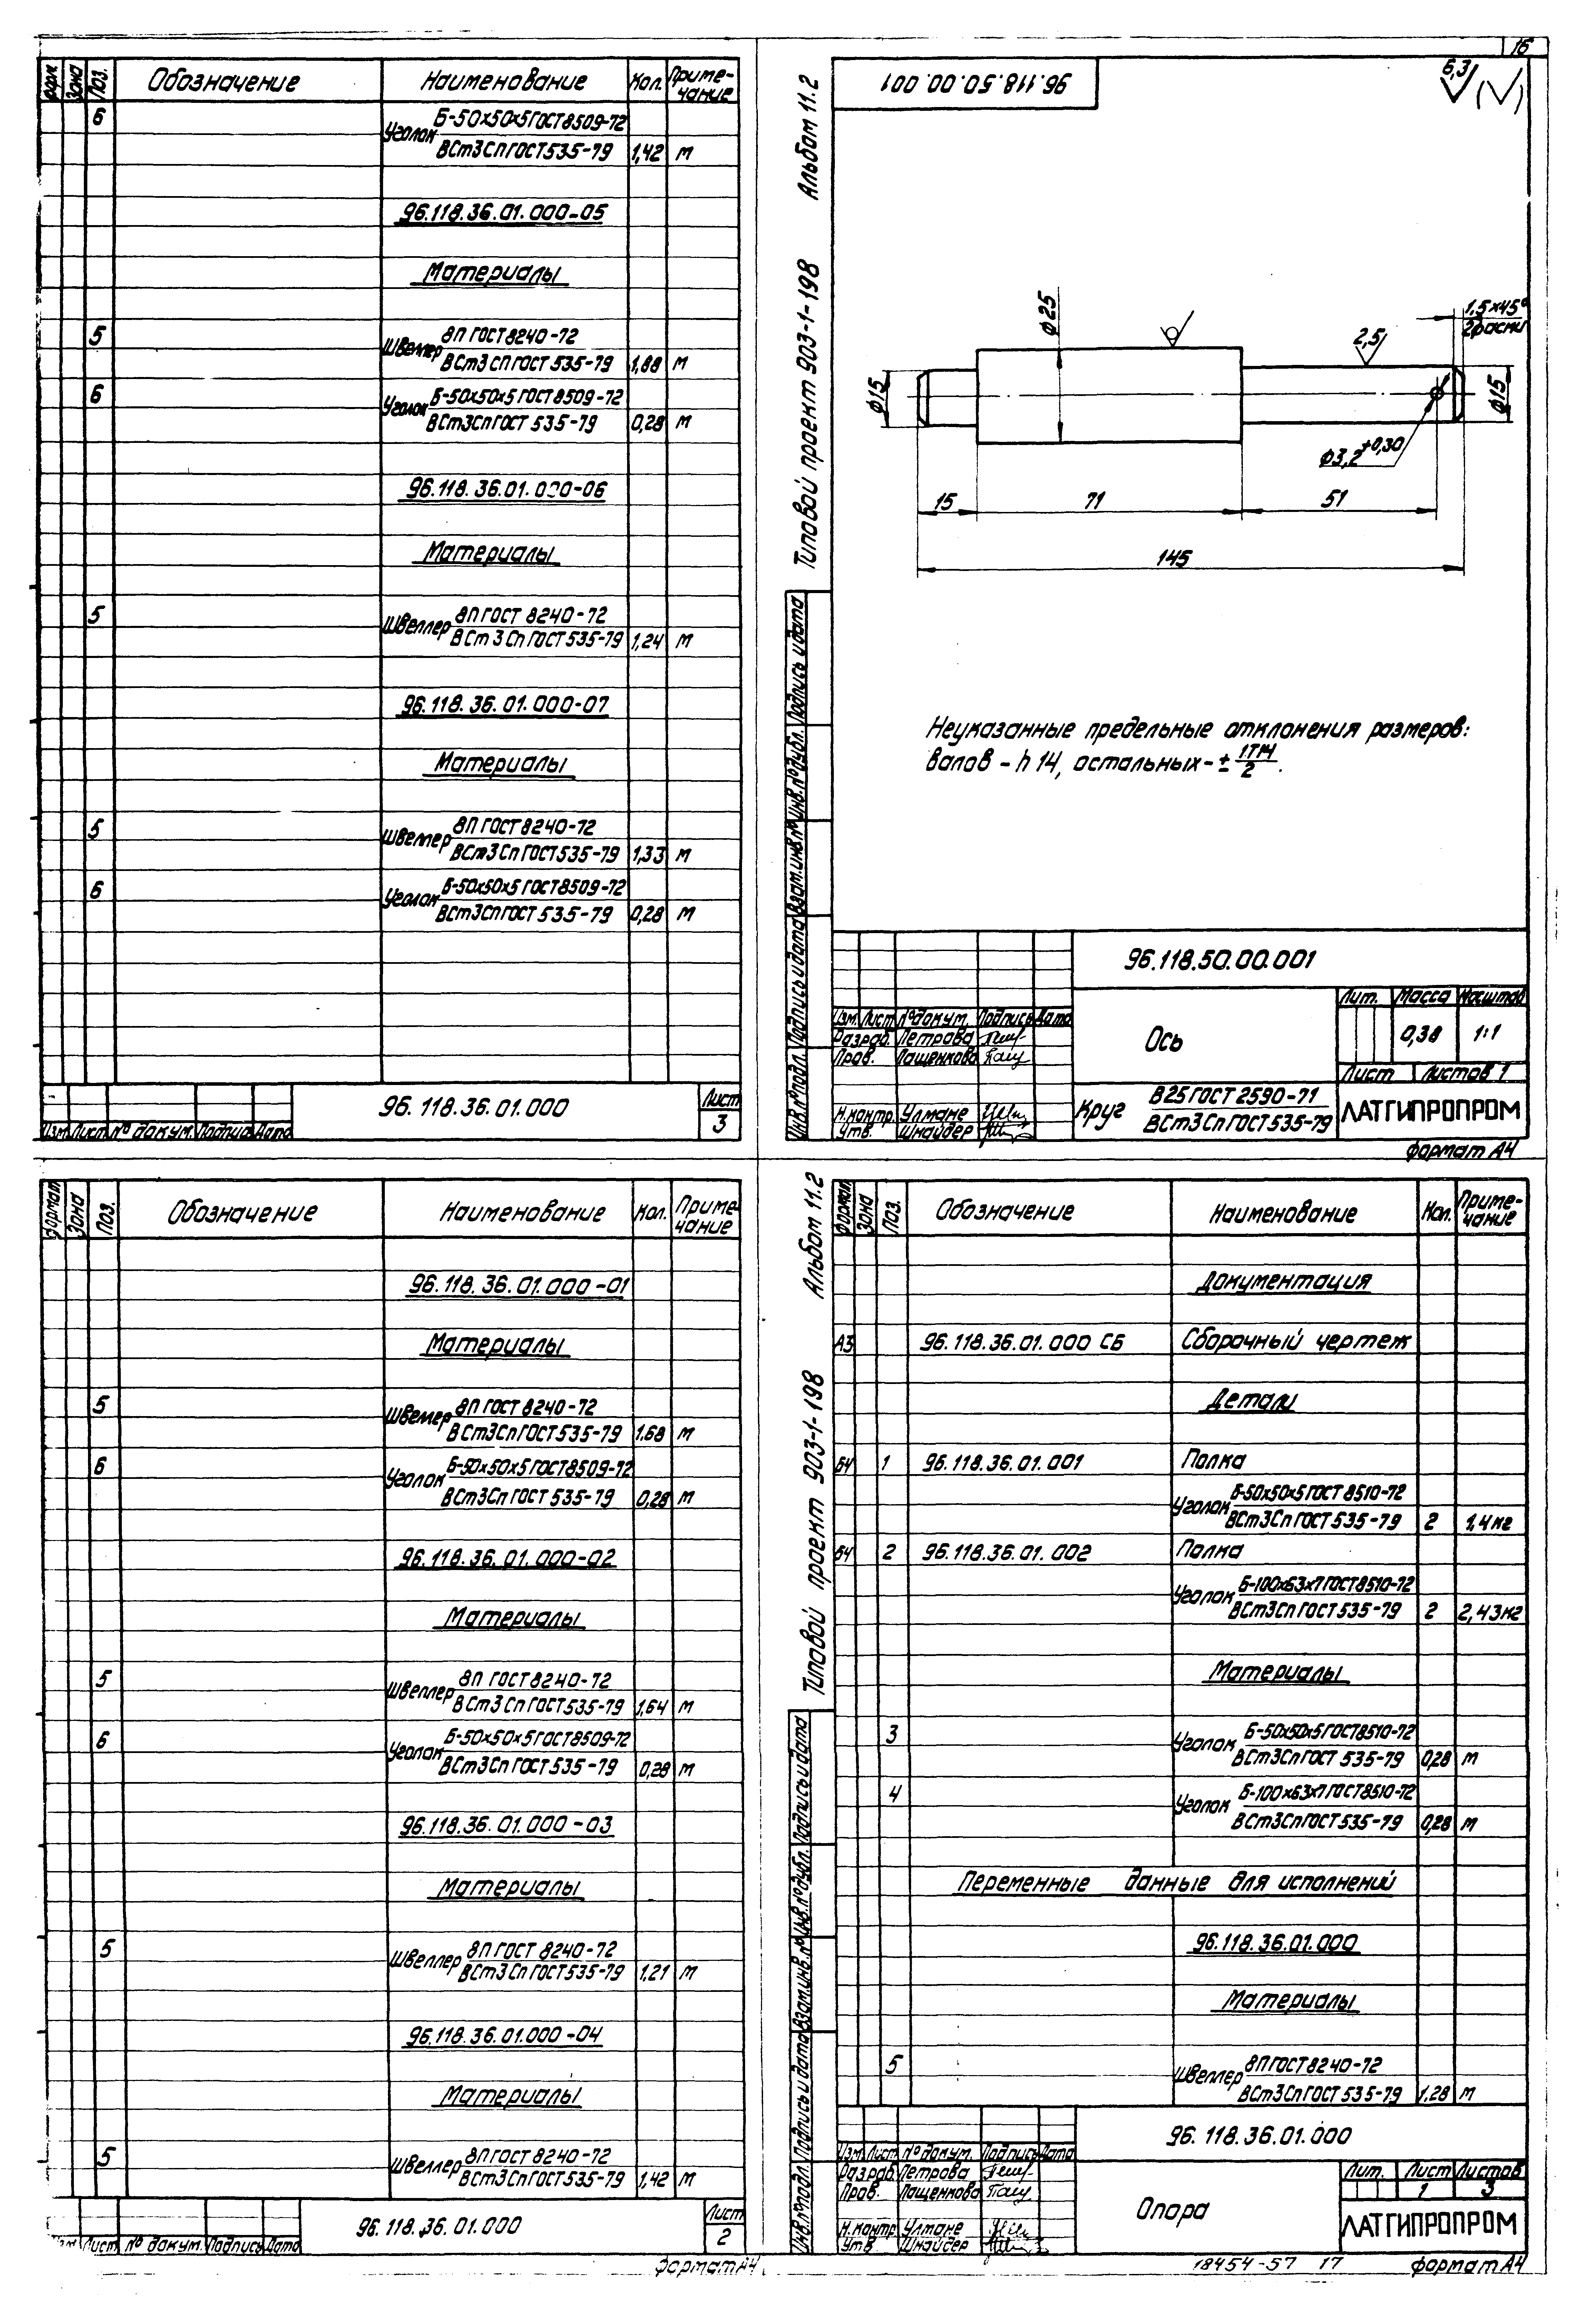 16
форм. Зона Поз. Обозначение Наименование Кол. Приме-
чание
6 Уголок Б-50х50х5 ГОСТ 8509-72
ВСт3Сп ГОСТ 535-79 1,42 м
96.118.36.01.000-05
Материалы
5 Швеллер 8П ГОСТ 8240-72
ВСт3Сп ГОСТ 535-79 1,88 м
6 Уголок Б-50х50х5 ГОСТ 8509-72
ВСт3Сп ГОСТ 535-79 0,28 м
96.118.36.01.000-06
Материалы
5 Швеллер 8П ГОСТ 8240-72
ВСт3Сп ГОСТ 535-79 1,24 м
96.118.36.01.000-07
Материалы
5 Швеллер 8П ГОСТ 8240-72
ВСт3Сп ГОСТ 535-79 1,33 м
6 Уголок Б-50х50х5 ГОСТ 8509-72
ВСт3Сп ГОСТ 535-79 0,28 м
Изм. Лист № докум. Подпись Дата
96.118.36.01.000
Лист
3
Типовой проект 903-1-198 Альбом 11.2
96.118.50.00.001
6,3 (√)
ф25
1,5×45°
2 фаски
2,5
ф15
ф15
ф3,2 +0,30
15 71 51
145
Неуказанные предельные отклонения размеров:
валов - h14, остальных - ± IT14
2 .
Инв. № подл. Подпись и дата Взам. инв. № Инв. № дубл. Подпись и дата
96.118.50.00.001
Изм. Лист № докум. Подпись Дата
Разраб. Петрова
Пров. Пащенкова
Н.контр. Улмане
Утв. Шнайдер
Ось
Лит. Масса Масштаб
0,38 1:1
Лист Листов 1
Круг В25 ГОСТ 2590-71
ВСт3Сп ГОСТ 535-79
ЛАТГИПРОПРОМ
формат А4
Формат Зона Поз. Обозначение Наименование Кол. Приме-
чание
96.118.36.01.000-01
Материалы
5 Швеллер 8П ГОСТ 8240-72
ВСт3Сп ГОСТ 535-79 1.68 м
6 Уголок Б-50х50х5 ГОСТ 8509-72
ВСт3Сп ГОСТ 535-79 0,28 м
96.118.36.01.000-02
Материалы
5 Швеллер 8П ГОСТ 8240-72
ВСт3Сп ГОСТ 535-79 1,64 м
6 Уголок Б-50х50х5 ГОСТ 8509-72
ВСт3Сп ГОСТ 535-79 0,28 м
96.118.36.01.000-03
Материалы
5 Швеллер 8П ГОСТ 8240-72
ВСт3Сп ГОСТ 535-79 1,21 м
96.118.36.01.000-04
Материалы
5 Швеллер 8П ГОСТ 8240-72
ВСт3Сп ГОСТ 535-79 1,42 м
Изм Лист № докум. Подпись Дата
96.118.36.01.000
Лист
2
формат А4
Типовой проект 903-1-198 Альбом 11.2
Формат Зона Поз. Обозначение Наименование Кол. Приме-
чание
Документация
А3 96.118.36.01.000 СБ Сборочный чертеж
Детали
б4 1 96.118.36.01.001 Полка
Уголок Б-50х50х5 ГОСТ 8510-72
ВСт3Сп ГОСТ 535-79 2 1,4кг
б4 2 96.118.36.01.002 Полка
Уголок Б-100х63х7 ГОСТ 8510-72
ВСт3Сп ГОСТ 535-79 2 2,43кг
Материалы
3 Уголок Б-50х50х5 ГОСТ 8510-72
ВСт3Сп ГОСТ 535-79 0,28 м
4 Уголок Б-100х63х7 ГОСТ 8510-72
ВСт3Сп ГОСТ 535-79 0,28 м
Переменные данные для исполнений
96.118.36.01.000
Материалы
5 Швеллер 8П ГОСТ 8240-72
ВСт3Сп ГОСТ 535-79 1,28 м
Инв. № подл. Подпись и дата Взам. инв. № Инв. № дубл. Подпись и дата
96.118.36.01.000
Изм. Лист № докум. Подпись Дата
Разраб. Петрова
Пров. Пащенкова
Н.контр. Улмане
Утв. Шнайдер
Опора
Лит. Лист Листов
1 3
ЛАТГИПРОПРОМ
18454-57 17 формат А4